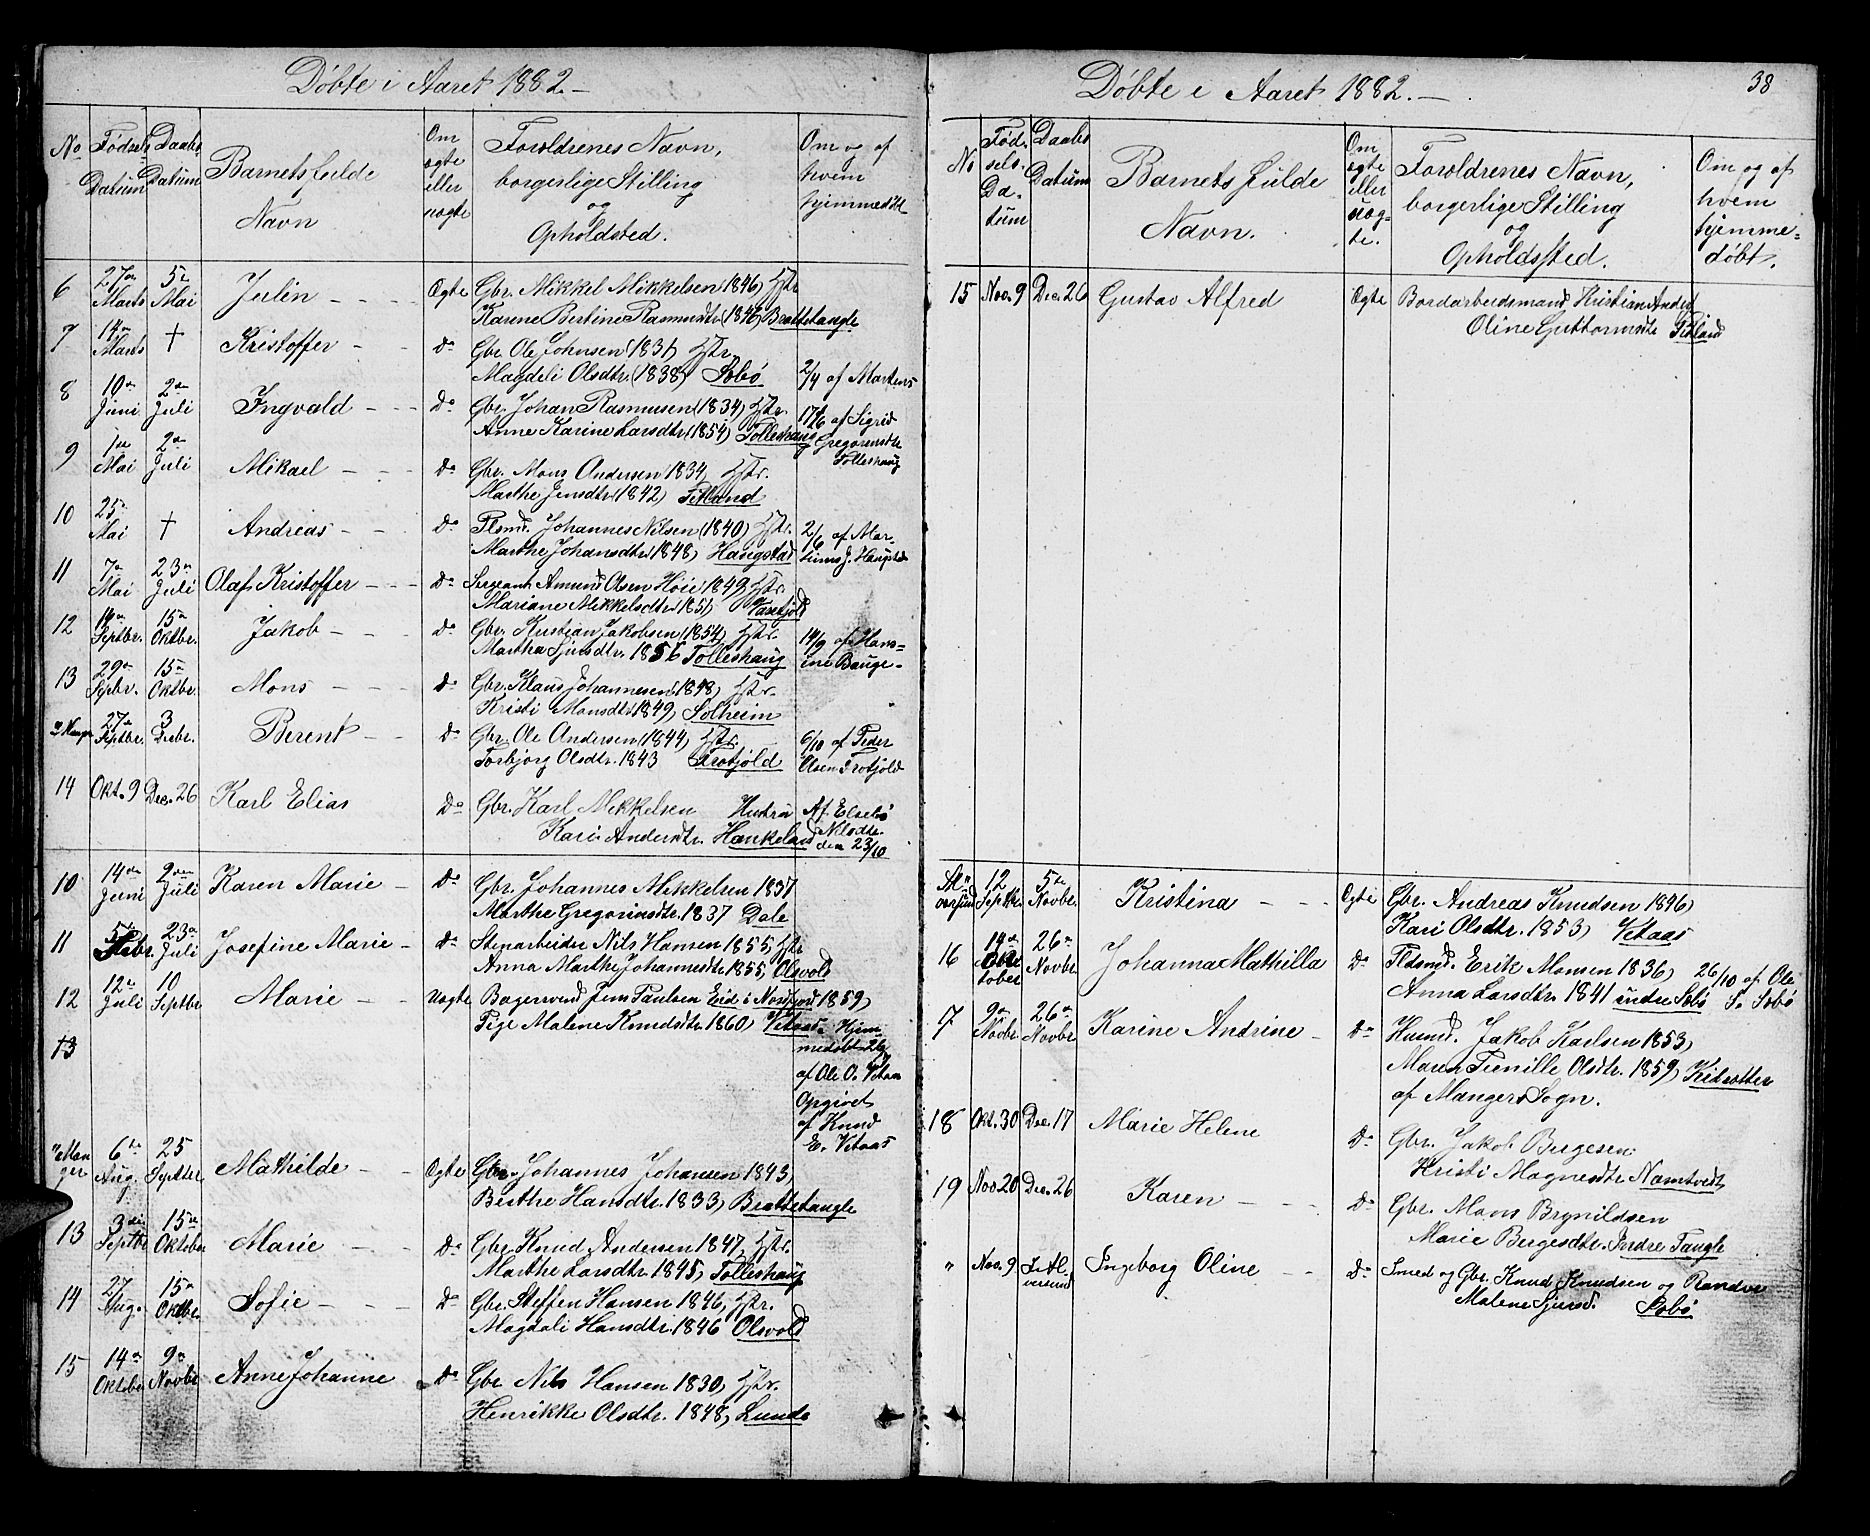 Döbte i Aaret 1882.—
No
Födsels Datum
Daabs Datum
Barnets fulde Navn
Om ægte eller uægte
Forældrenes Navn, borgerlige Stilling og Opholdsted.
Om og af hvem hjemmedöbt
6 27de Marts 5te Mai Julin Ægte Gbr. Mikkel Mikkelsen (1846) Hstr.
Karine Bertine Rasmusdtr. (1846) Brattetangle
7 14de Marts † Kristoffer Do Gbr. Ole Johnsen (1831) Hstr.
Magdeli Olsdtr. (1838) Söbö 2/4 af Martens
8 10de Juni 2den Juli Ingvald Do Gbr. Johan Rasmusen (1834) Hstr. 17/6 af Sigrid
Anne Karine Larsdtr. (1854) Tolleshaug Gregoriusdtr. Tolleshaug
9 1ste Mai 2den Juli Mikael Do Gbr. Mons Andersen 1834 Hstr.
Marthe Jensdtr. (1842) Sætland
10 25de Mai † Andreas Do Plsmd. Johannes Nilsen (1840) Hstr. 2/6 af Mar-
Marthe Johansdtr. 1848) Haugstad tinus J. Haugstad
11 7de Mai 23de Juli Olaf Kristoffer Do Sergeant Amund Olsen Höie 1849 Hstr.
Mariane Mikkelsdtr. 1851)
12 Septbr. 15de Oktbr. Jakob Do Gbr. Kristian Jakobsen (1854) Hstr. 14/9 af Hans-
Martha Sjursdtr. 1856 Tolleshaug ine Bauge-
13 29de Sepbr. 15de Oktbr. Mons Do Gbr. Klaus Johannesen 1848) Hstr.
Kristi Monsdtr. 1849) Solheim
" Manger 27de Septbr. 3 Desbr. Berent Do Gbr. Ole Andersen (1844) Hstr. 6/10 af Peder
Torbjörg Olsdtr. 1843 Trotfjöld Olsen Trotfjöld
14 Okt. 9 Dec. 26 Karl Elias Do Gbr. Karl Mikkelsen Hustru Af Elsebö
Kari Andersdtr. Hankeland Nilsdtr. den 23/10
10 14de Juni 2den Juli Karen Marie Do Gbr. Johannes Mikkelsen 1837
Marthe Gregoriusdtr. 1837 Dale
11 5te Febr. 23de Juli Josefine Marie Do Stenarbeider Nils Hansen 1855) Hstr
Anna Marthe Johannesdtr. 1855) Olsvold
12 12te Juli 10 Septbr Marie Uægte Bagersvend Jens Paulsen Eid i Nordfjord 1859)
Pige Malene Knudsdtr. 1860) Vetaas. Hjem-
13 medöbt
af Ole O. Vetaas
Opgivet
af Knud
E. Vetaas
" Manger 6te Aug. 25 Septbr Mathilde Ægte Gbr. Johannes Johansen 1843)
Berthe Hansdtr. 1833) Brattetangle
13 3die Septbr 15de Oktober Marie Do Gbr. Knud Andersen 1847) Hstr.
Marthe Larsdtr. 1845) Tolleshaug
14 27 Aug. 15de Oktbr Sofie Do Gbr. Steffen Hansen 1846) Hstr.
Magdali Hansdtr. 1846 Olsvold
15 14de Oktober 9de Novbr Anne Johanne Do Gbr. Nils Hansen 1830) Hstr.
Henrikke Olsdtr. 1848) Lunde
Döbte i Aaret 1882.— 38
No
Födsels Datum
Daabs Datum
Barnets fulde Navn.
Om ægte eller uægte.
Forældrenes Navn, borgerlige Stilling og Opholdssted.
Om og af hvem hjemmedöbt.
15 Nov. 9 Dec. 26 Gustav Alfred Ægte Bordarbeidsmand Kristian Anders
Oline Guttormsdtr. Sætland
12 Septbr. 5te Novbr. Kristina Ægte Gbr. Andreas Knudsen 1846)
Kari Olsdtr. 1853) Vetaas
16 14de Oktober 26de Novbr Johanna Mathilla Do Plsmd. Erik Monsen 1836) 26/10 af Ole
Anna Larsdtr. 1841 indre Söbö S. Söbö
17 9de Novbr 26de Novbr Karine Andrine Do Husmd. Jakob Karlsen 1853)
Maren Pernille Olsdtr. 1859)
af Mangers Sogn.
18 Okt. 30 Dec. 17 Marie Helene Do Gbr. Jakob Bergesen
Kristi Magnesdtr. Namtvedt
19 Nov. 20 Dec. 26 Karen Do Gbr. Mons Brynildsen
Marie Bergesdtr. Indre Tangle
" Nov. 9 Ingeborg Oline Do Smed og Gbr. Knud Knudsen og
Malene Sjursd. Söbö